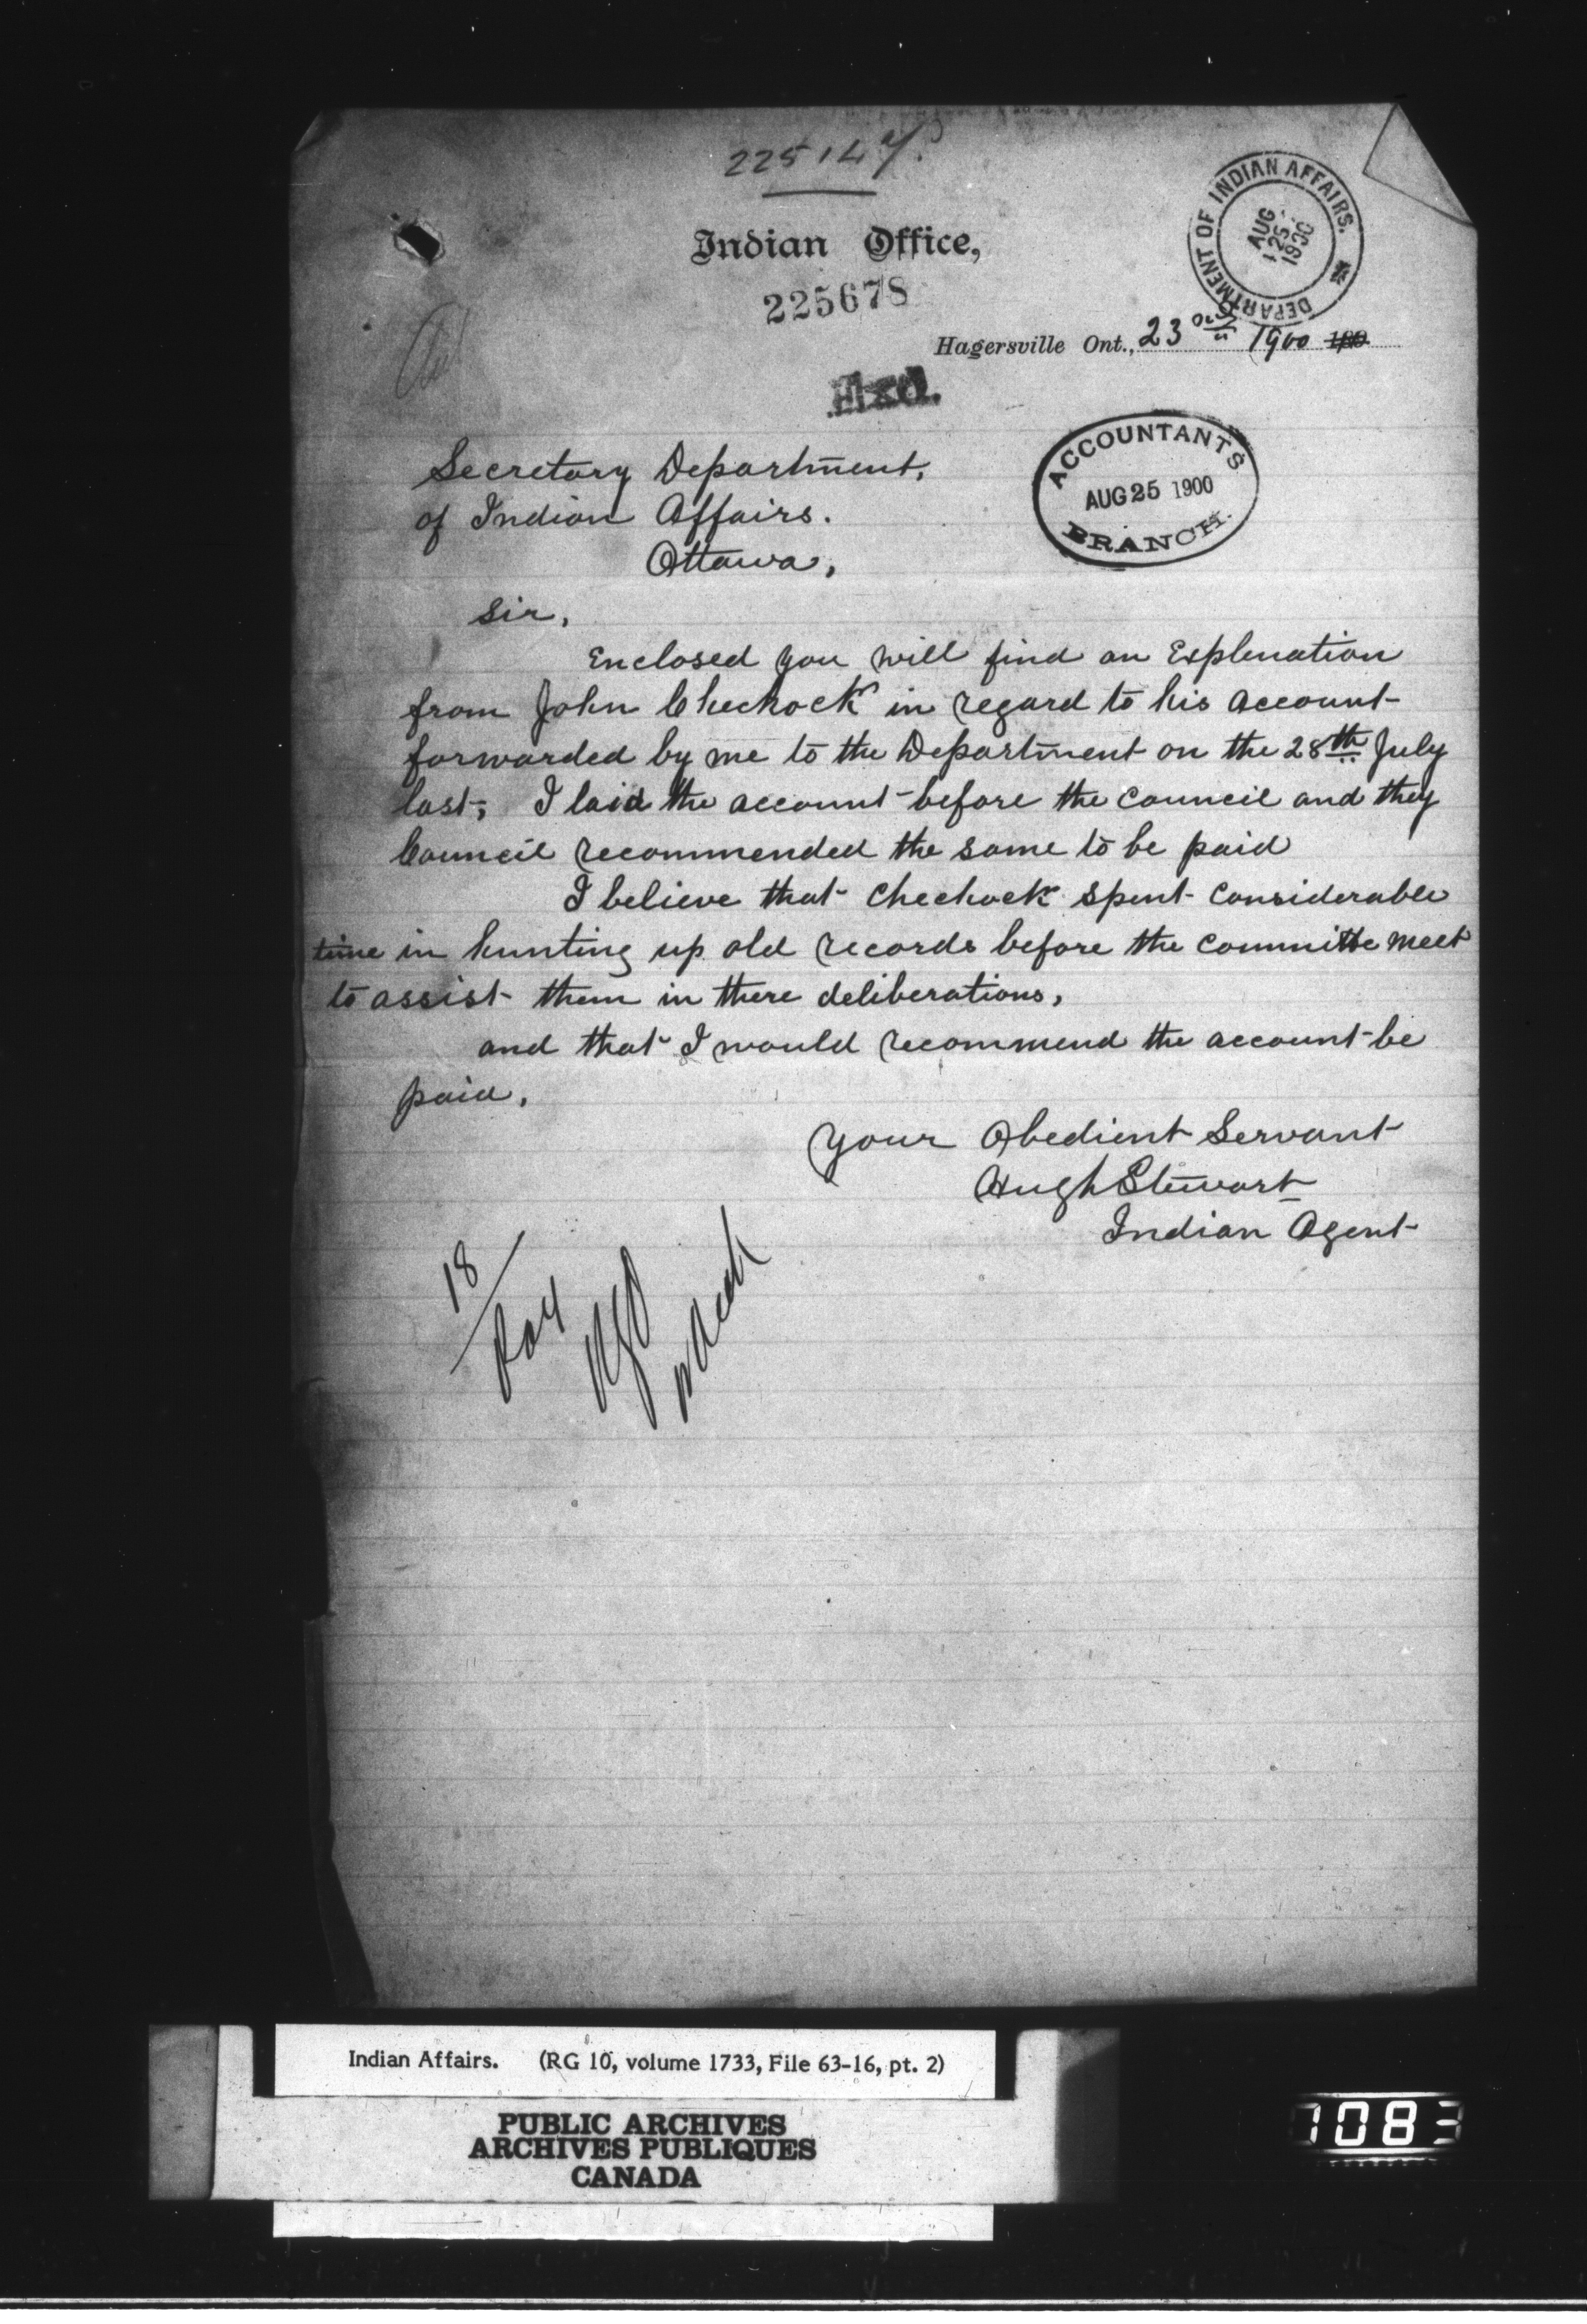 DEPARTMENT OF INDIAN AFFAIRS.
AUG 25 1900
Indian Office,
225678
Hagersville Ont., 23 Aug 1900 189
Secretary Department,
of Indian Affairs.
Ottawa,
ACCOUNTANT'S
AUG 25 1900
BRANCH.
Sir,
Enclosed you will find an Explenation
from John Chechock in regard to his account
forwarded by me to the Department on the 28th July
last; I laid the account before the council and they
Council recommended the same to be paid
I believe that Chechock spent considerable
time in hunting up old records before the committe meet
to assist them in there deliberations,
and that I would recommend the account be
paid,
Your Obedient Servant
Hugh Stewart
Indian Agent
18
Indian Affairs. (RG 10, volume 1733, File 63-16, pt. 2)
PUBLIC ARCHIVES
ARCHIVES PUBLIQUES
CANADA
1083